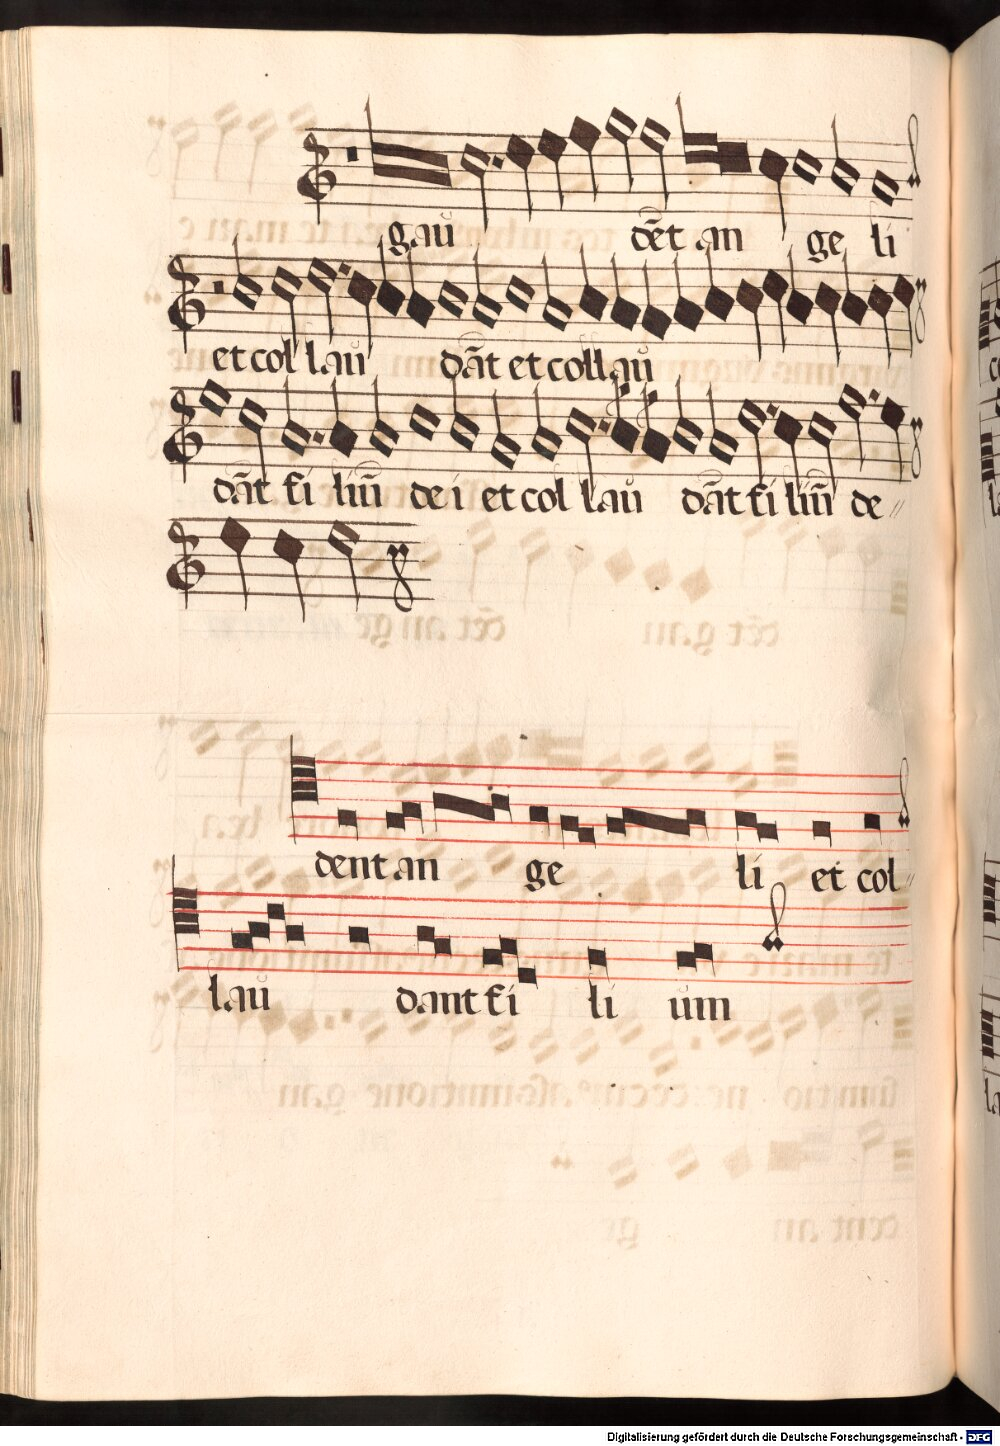 gaū dēt an ge li
et col laū dāt et collaū
dāt fi liū de i et col laū dāt fi liū de //
dent an ge li et col //
laū dant fi li um
Digitalisierung gefördert durch die Deutsche Forschungsgemeinschaft - DFG